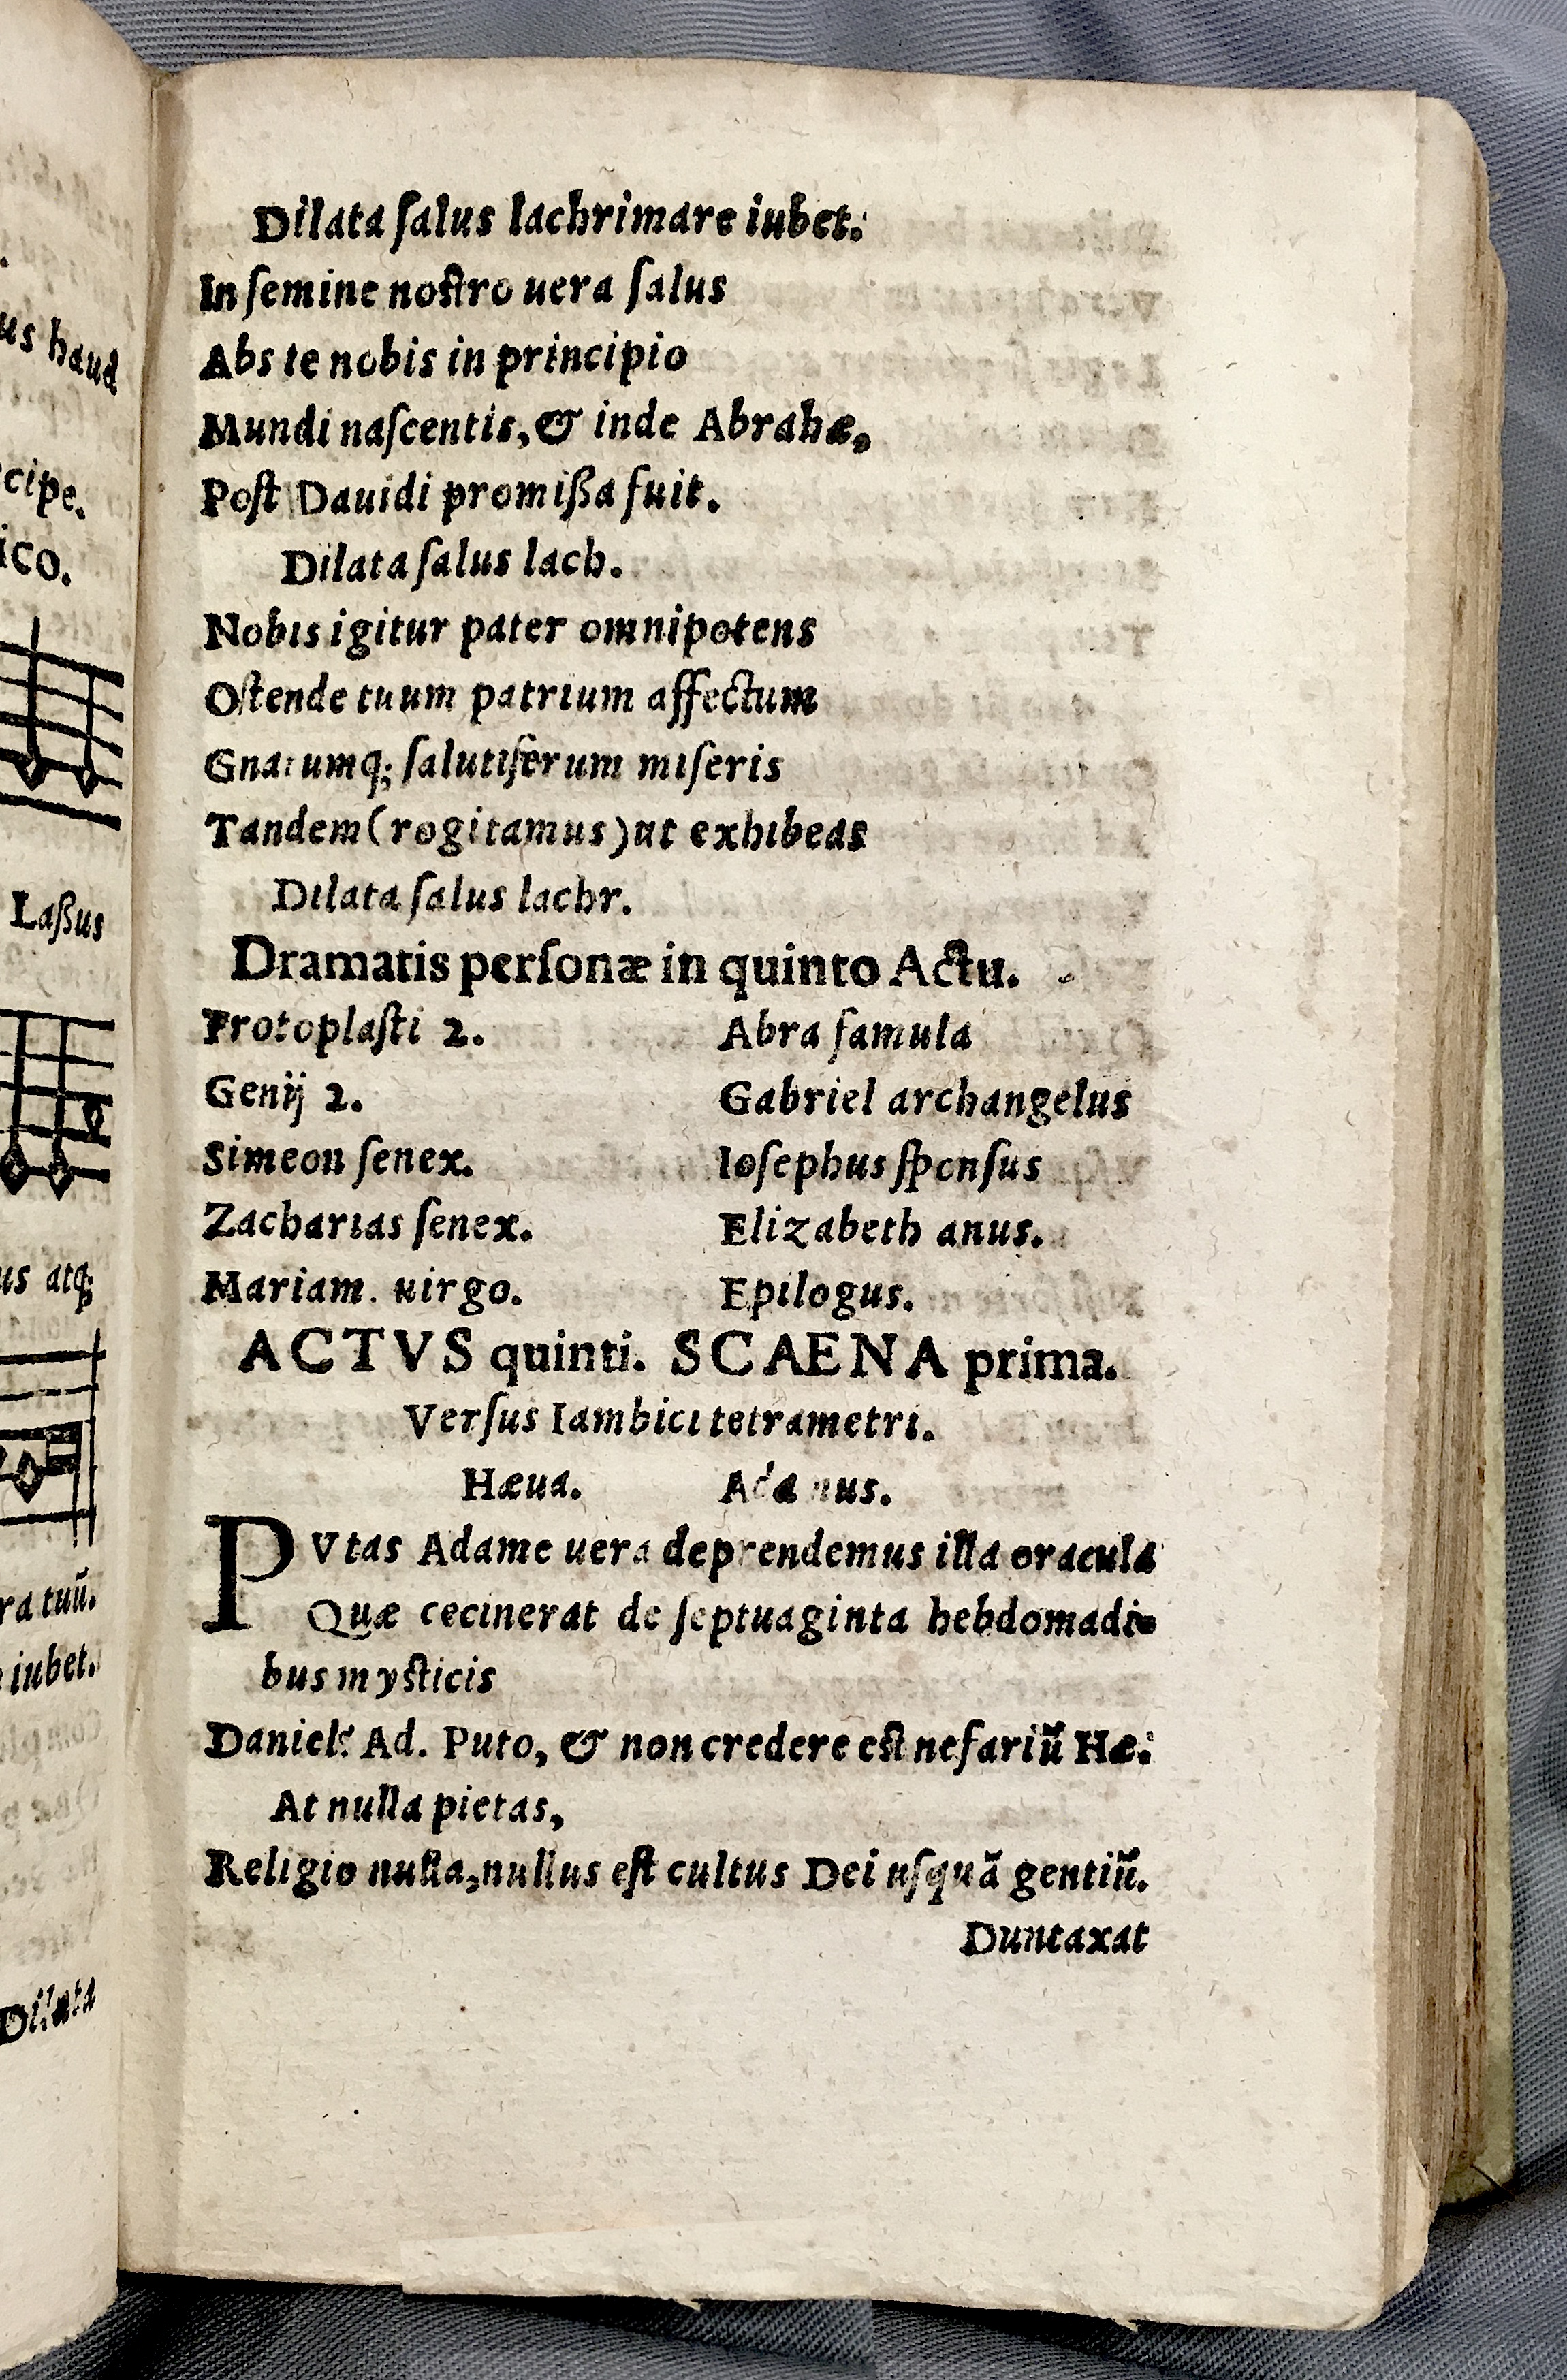 Dilata ſalus lachrimare iubet.
In ſemine noſtro uera ſalus
Abs te nobis in principio
Mundi naſcentis, & inde Abrahæ,
Poſt Dauidi promißa fuit.
Dilata ſalus lach.
Nobis igitur pater omnipotens
Oſtende tuum patrium affectum
Gnatumq; ſalutiferum miſeris
Tandem (rogitamus) ut exhibeas
Dilata ſalus lachr.
Dramatis perſonæ in quinto Actu.
Protoplaſti 2. Abra famula
Genij 2. Gabriel archangelus
Simeon ſenex. Ioſephus ſponſus
Zacharias ſenex. Elizabeth anus.
Mariam. uirgo. Epilogus.
ACTVS quinti. SCAENA prima.
Verſus Iambici tetrametri.
Hæua. Adamus.
PVtas Adame uera deprendemus illa oracula
Quæ cecinerat de ſeptuaginta hebdomadi-
bus myſticis
Daniel? Ad. Puto, & non credere eſt nefariũ Hæ.
At nulla pietas,
Religio nulla, nullus eſt cultus Dei uſquã gentiũ.
Duntaxat
us haud
cipe.
ico.
Laßus
us atq;
ra tuũ.
iubet.
Dilata